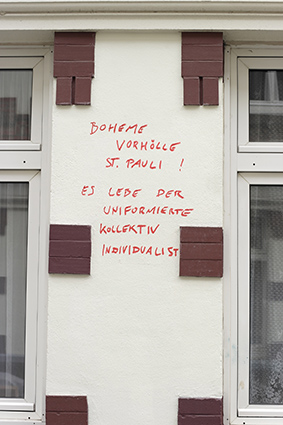 BOHEME
VORHÖLLE
ST. PAULI !
ES LEBE DER
UNIFORMIERTE
KOLLEKTIV
INDIVIDUALIST